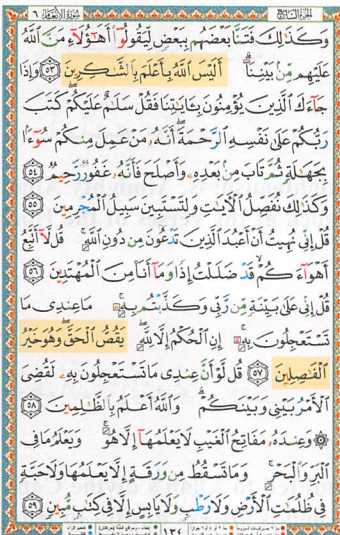 الجزء السابع سورة الأنعام ٦
وَكَذَٰلِكَ فَتَنَّا بَعْضَهُم بِبَعْضٍ لِّيَقُولُوٓا۟ أَهَٰٓؤُلَآءِ مَنَّ ٱللَّهُ
عَلَيْهِم مِّنۢ بَيْنِنَآ ۗ أَلَيْسَ ٱللَّهُ بِأَعْلَمَ بِٱلشَّٰكِرِينَ ٥٣ وَإِذَا
جَآءَكَ ٱلَّذِينَ يُؤْمِنُونَ بِـَٔايَٰتِنَا فَقُلْ سَلَٰمٌ عَلَيْكُمْ ۖ كَتَبَ
رَبُّكُمْ عَلَىٰ نَفْسِهِ ٱلرَّحْمَةَ ۖ أَنَّهُۥ مَنْ عَمِلَ مِنكُمْ سُوٓءًۢا
بِجَهَٰلَةٍ ثُمَّ تَابَ مِنۢ بَعْدِهِۦ وَأَصْلَحَ فَأَنَّهُۥ غَفُورٌ رَّحِيمٌ ٥٤
وَكَذَٰلِكَ نُفَصِّلُ ٱلْـَٔايَٰتِ وَلِتَسْتَبِينَ سَبِيلُ ٱلْمُجْرِمِينَ ٥٥
قُلْ إِنِّى نُهِيتُ أَنْ أَعْبُدَ ٱلَّذِينَ تَدْعُونَ مِن دُونِ ٱللَّهِ ۚ قُل لَّآ أَتَّبِعُ
أَهْوَآءَكُمْ ۙ قَدْ ضَلَلْتُ إِذًا وَمَآ أَنَا۠ مِنَ ٱلْمُهْتَدِينَ ٥٦
قُلْ إِنِّى عَلَىٰ بَيِّنَةٍ مِّن رَّبِّى وَكَذَّبْتُم بِهِۦ ۚ مَا عِندِى مَا
تَسْتَعْجِلُونَ بِهِۦٓ ۚ إِنِ ٱلْحُكْمُ إِلَّا لِلَّهِ ۖ يَقُصُّ ٱلْحَقَّ ۖ وَهُوَ خَيْرُ
ٱلْفَٰصِلِينَ ٥٧ قُل لَّوْ أَنَّ عِندِى مَا تَسْتَعْجِلُونَ بِهِۦ لَقُضِىَ
ٱلْأَمْرُ بَيْنِى وَبَيْنَكُمْ ۗ وَٱللَّهُ أَعْلَمُ بِٱلظَّٰلِمِينَ ٥٨
۞ وَعِندَهُۥ مَفَاتِحُ ٱلْغَيْبِ لَا يَعْلَمُهَآ إِلَّا هُوَ ۚ وَيَعْلَمُ مَا فِى
ٱلْبَرِّ وَٱلْبَحْرِ ۚ وَمَا تَسْقُطُ مِن وَرَقَةٍ إِلَّا يَعْلَمُهَا وَلَا حَبَّةٍ
فِى ظُلُمَٰتِ ٱلْأَرْضِ وَلَا رَطْبٍ وَلَا يَابِسٍ إِلَّا فِى كِتَٰبٍ مُّبِينٍ ٥٩
١٣٤